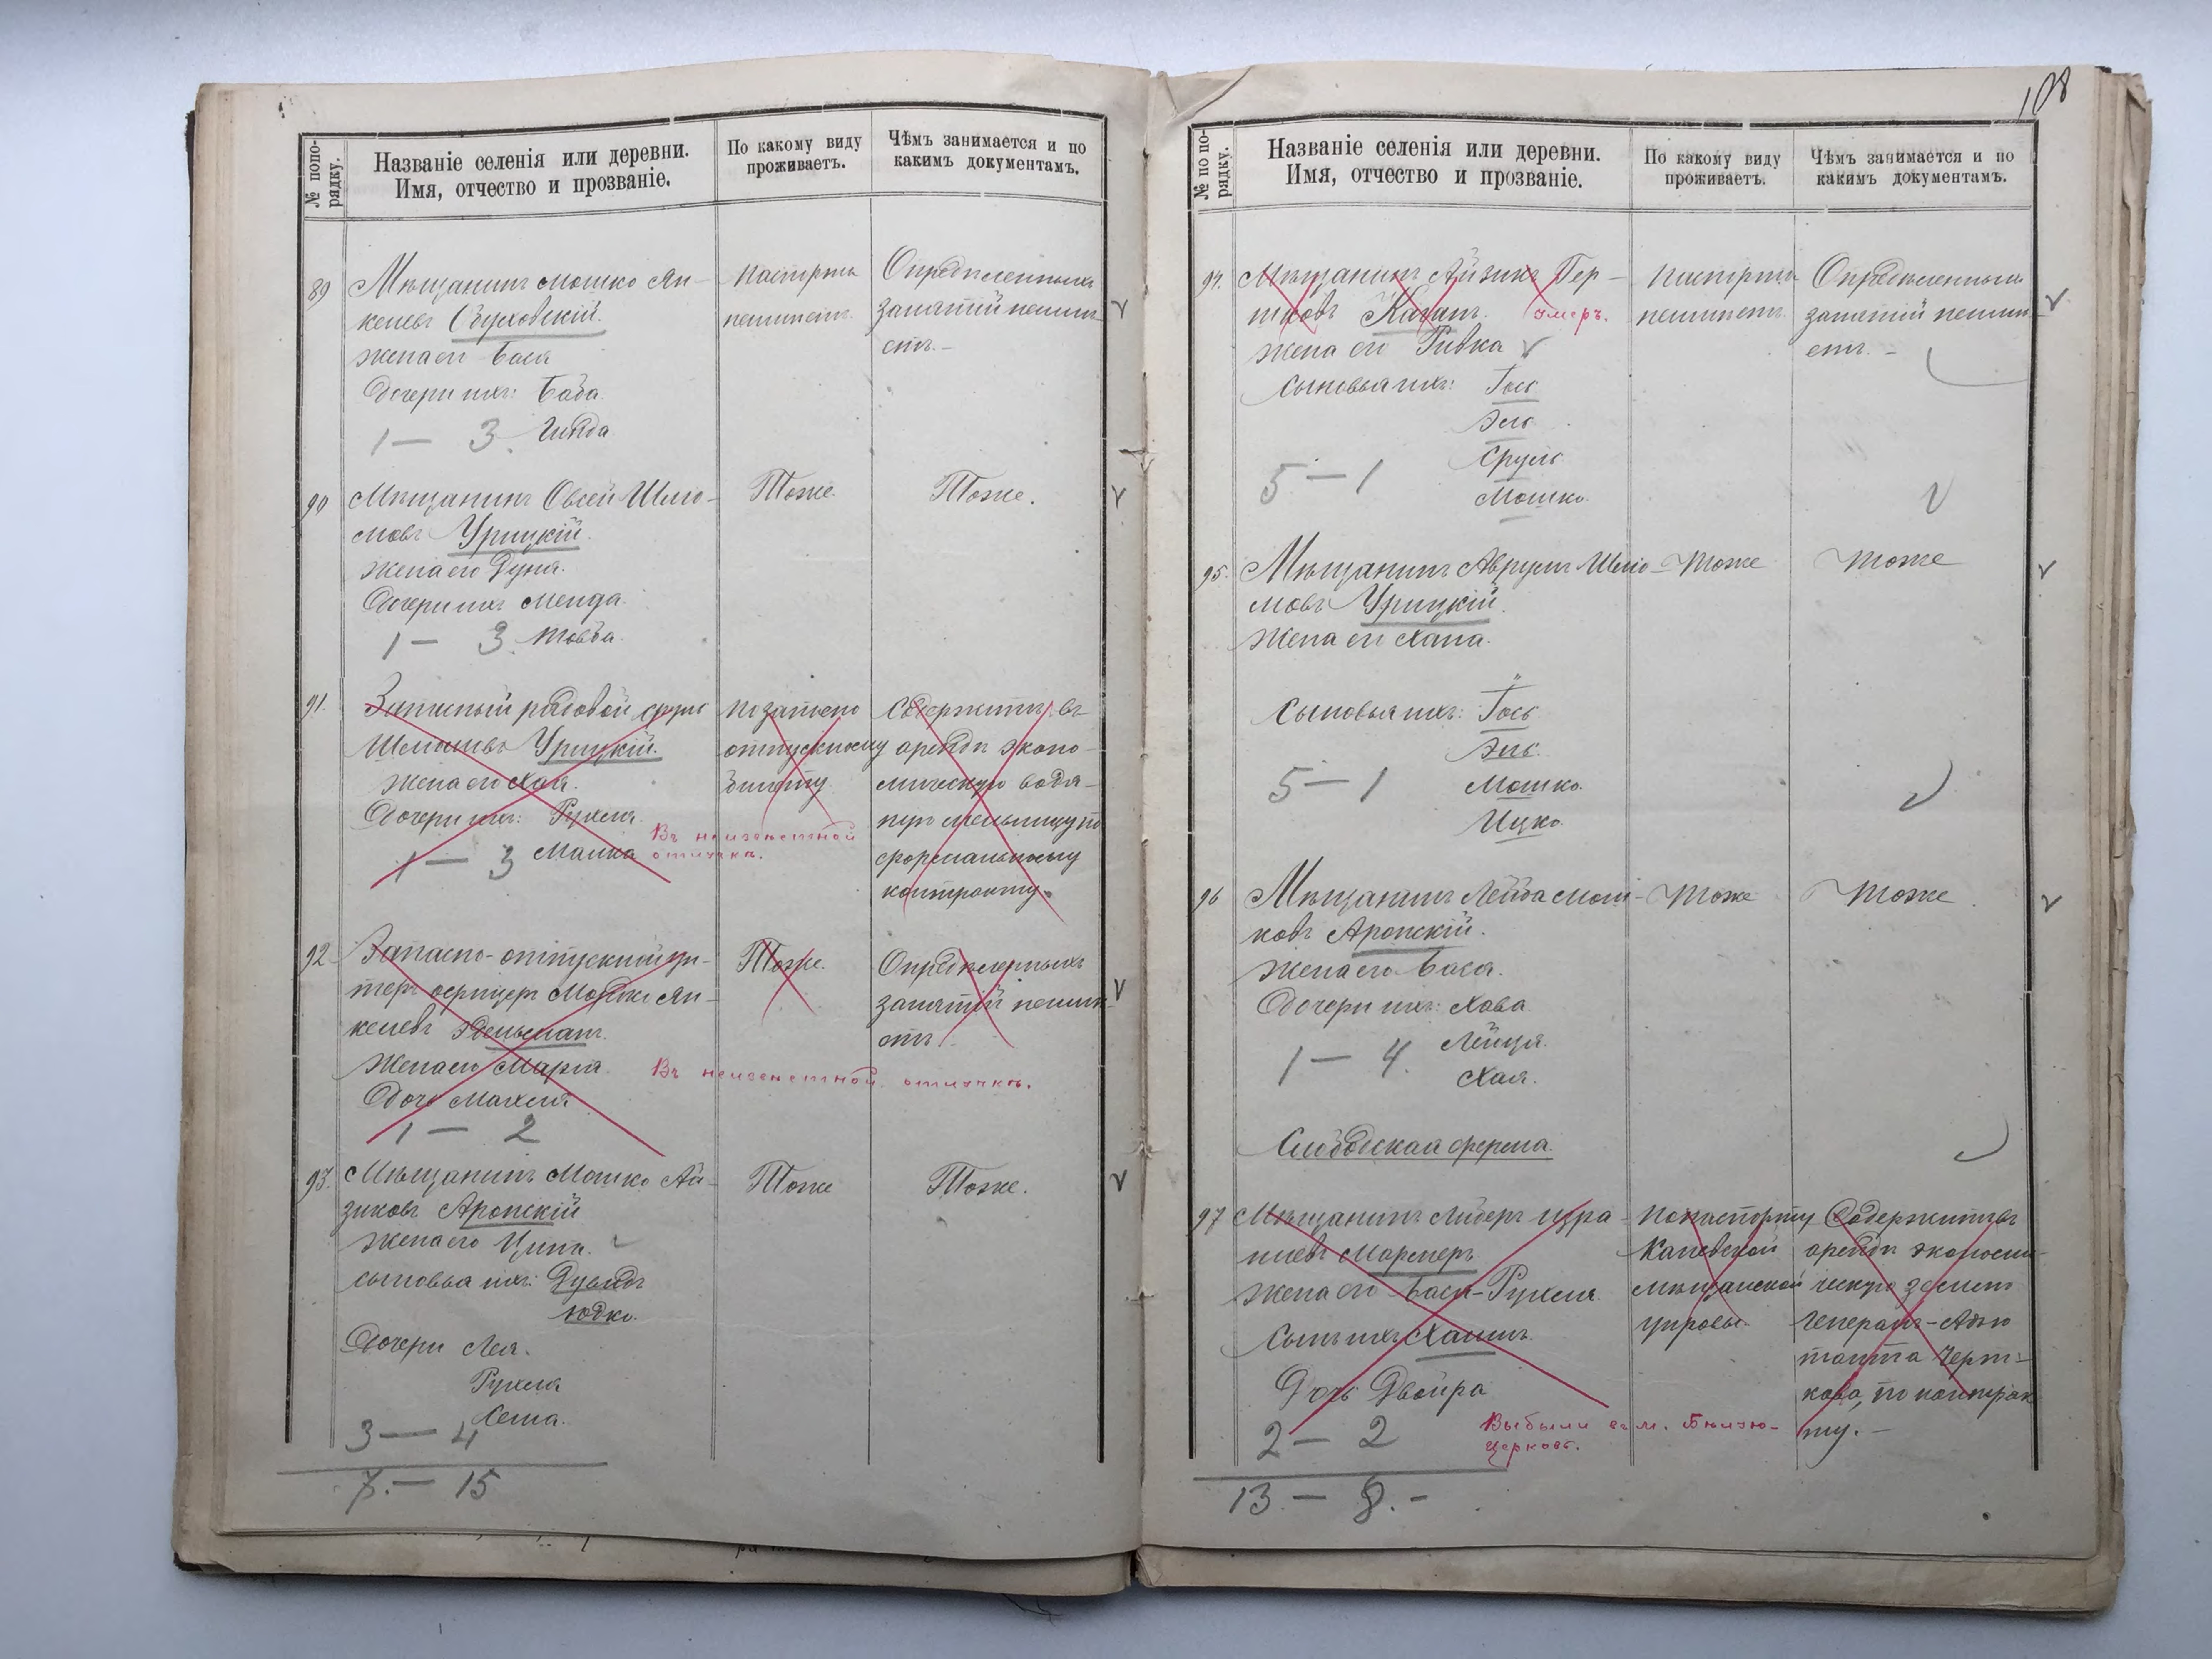 № по по-
рядку.
Названіе селенія или деревни.
Имя, отчество и прозваніе.
По какому виду
проживаетъ.
Чѣмъ занимается и по
какимъ документамъ.
89
Мѣщанинъ Мошко Ян-
келевъ
жена его Бася
Дочери ихъ: Баба.
1 — 3. Гинда
Паспорта
неимѣетъ.
Опредѣленныхъ
занятій неимѣ-
етъ. –
90
Мѣщанинъ Овсей Шлио-
мовъ Урицкій.
жена его Дуня.
Дочери ихъ Менда.
1 — 3. Товба.
Тоже.
Тоже.
91.
Запасный рядовой Сруль
Шлиомовъ Урицкій.
жена его Хая.
Дочери ихъ: Рухля.
1 — 3 Малка
Въ неизвѣстной
отлучкѣ.
По запасно
отпускному
билету
Содержитъ въ
арендѣ эконо-
мическую водя-
ную мельницу по
формальному
контракту.
92
Запасно-отпускный ун-
теръ офицеръ Мошко Ян-
келевъ Эдельманъ.
жена его Марія.
Дочь Махля
1 — 2
Тоже.
Опредѣленныхъ
занятій неимѣ-
етъ.
Въ неизвѣстной отлучкѣ.
93.
Мѣщанинъ Мошко Ай-
зиковъ Аронскій
жена его Ципа.
сыновья ихъ: Дувидъ
Юдко.
Дочери Лея.
Рухля
Хета.
3 — 4
7. — 15
Тоже
Тоже.
108
№ по по-
рядку.
Названіе селенія или деревни.
Имя, отчество и прозваніе.
По какому виду
проживаетъ.
Чѣмъ занимается и по
какимъ документамъ.
94.
Мѣщанинъ Айзикъ Гер-
шковъ Каганъ. Умеръ.
жена его Ривка
Сыновья ихъ: Іось
Эль
Сруль
5 — 1 Мошко.
Паспорта
неимѣетъ.
Опредѣленныхъ
занятій неимѣ-
етъ. –
95.
Мѣщанинъ Аврумъ Шлио-
мовъ Урицкій.
жена его Хана.
Сыновья ихъ: Іось
Эль.
5 — 1 Мошко.
Ицко.
Тоже
Тоже
96
Мѣщанинъ Лейба Мош-
ковъ Аронскій.
жена его Бася.
Дочери ихъ: Хава
Лейця.
1 — 4. Хая.
Тоже
Тоже
Слободская ферма.
97
Мѣщанинъ Либеръ Изра-
илевъ
жена его Бася-Рухля
Сынъ ихъ Хаимъ.
Дочь Двойра
2 — 2
Выбыли въ м. Бѣлую-
Церковь.
По паспорту
Каневской
мѣщанской
управы.
Содержитъ въ
арендѣ экономи-
ческую землю
Генералъ-Адъю
танта Черт-
кова, по контрак
ту. –
13. — 8. –